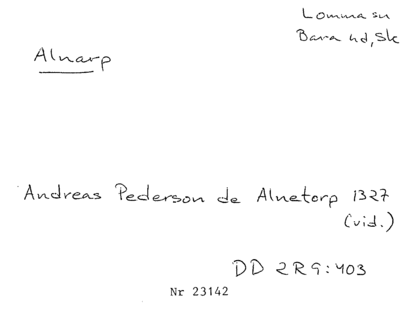 Lomma sn
Bara hd, Sk
Alnarp
Andreas Pederson de Alnetorp 1327
(vid.)
DD 2R9:403
Nr 23142